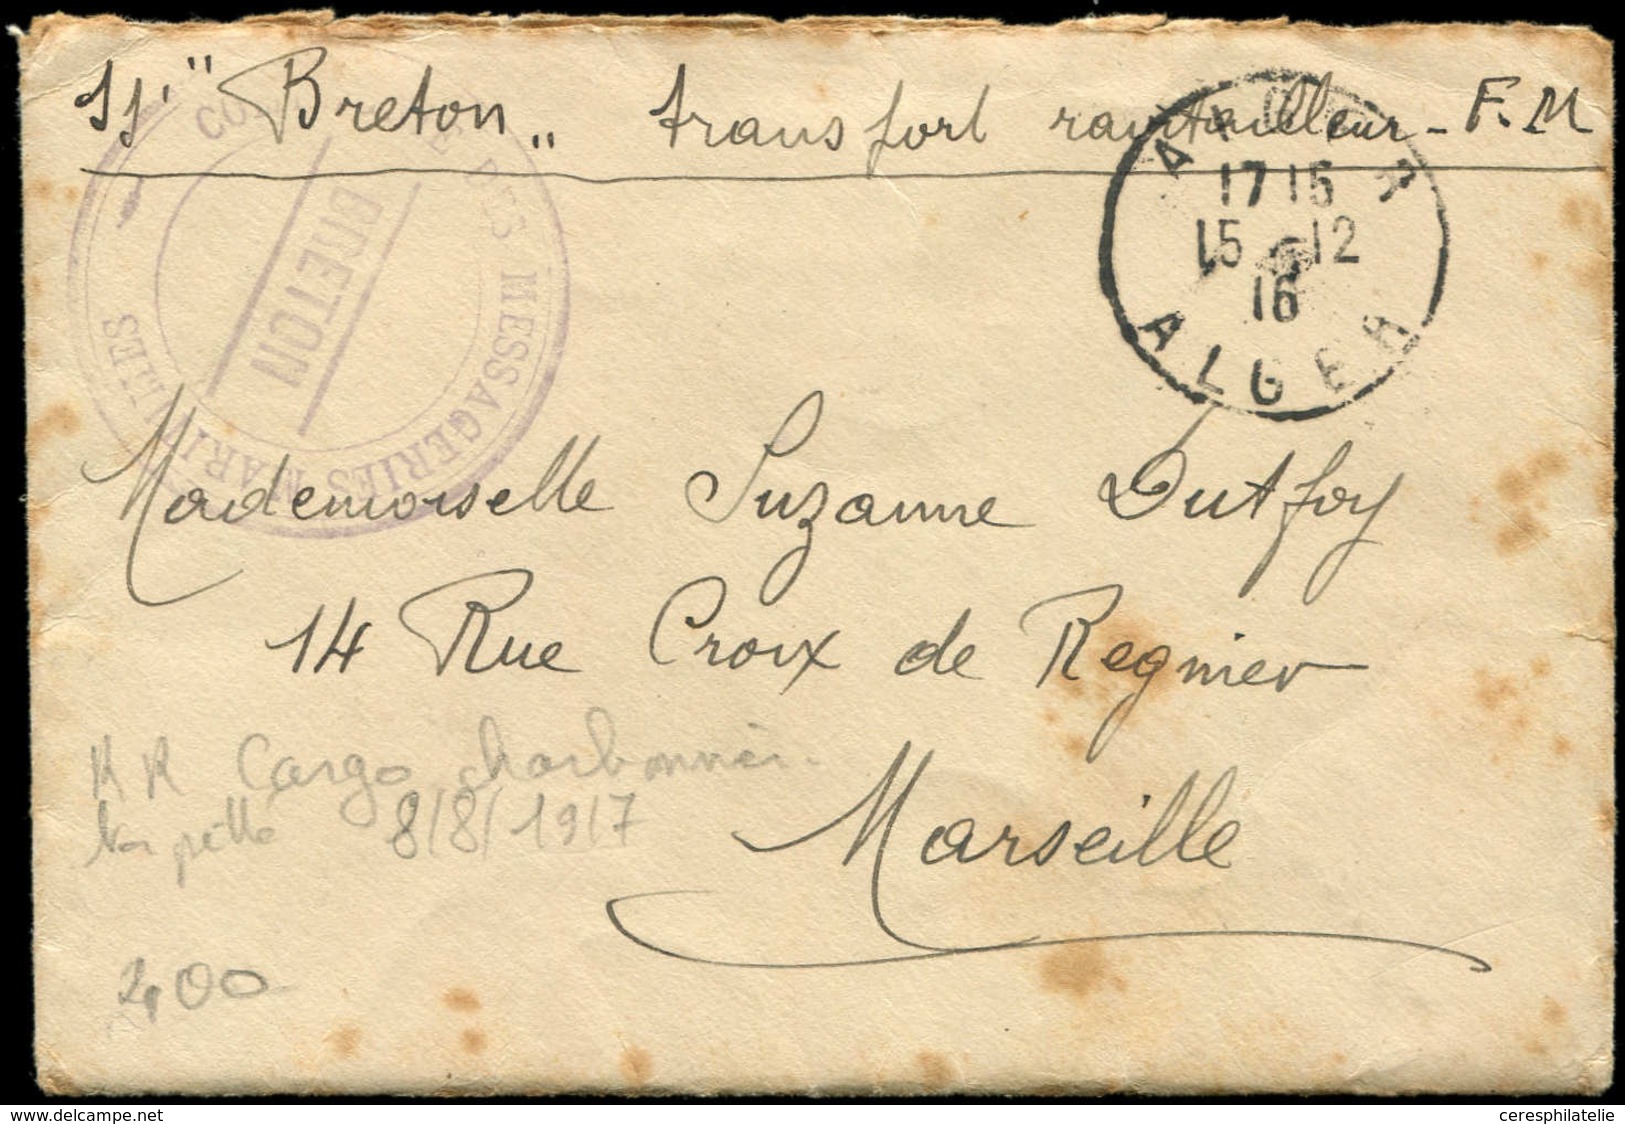 SS "Breton" transport ravitailleur - F.M
COMPAGNIE DES MESSAGERIES MARITIMES
BRETON
17 15
15 12
16
ALGER
Mademoiselle Suzanne Dutfoy
14 Rue Croix de Regnier
Marseille
RR Cargo charbonnier.
8/8/1917
200
www.delcampe.net
ceresphilatelie